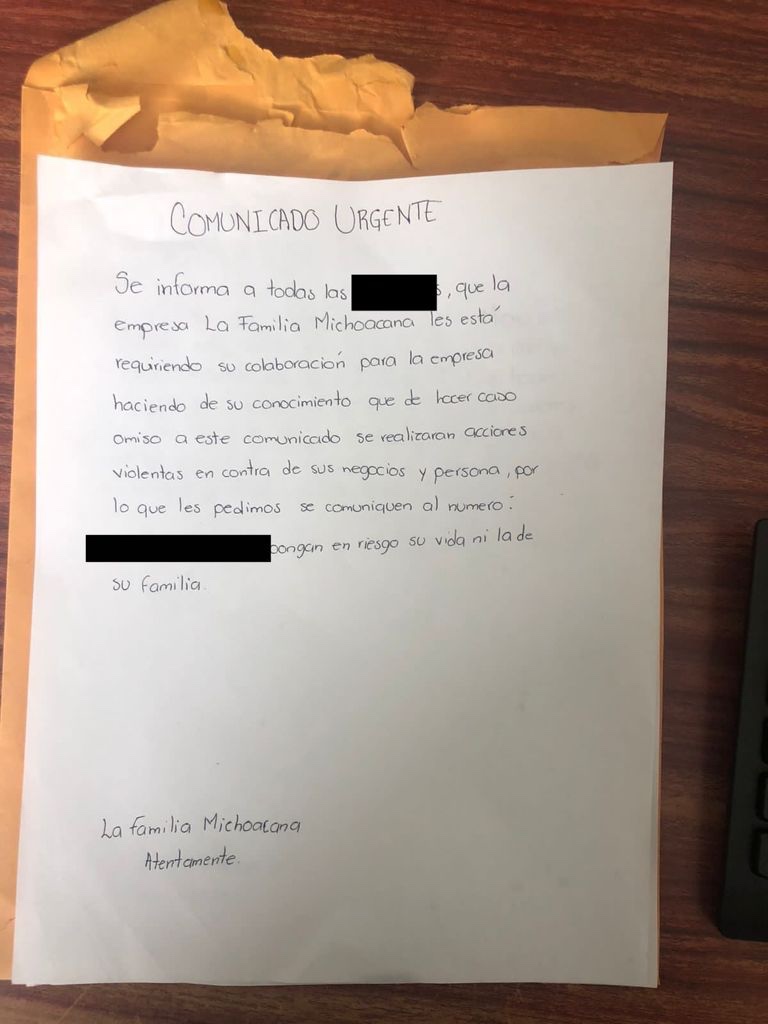 COMUNICADO URGENTE
Se informa a todas las s, que la
empresa La Familia Michoacana les está
requiriendo su colaboración para la empresa
haciendo de su conocimiento que de hacer caso
omiso a este comunicado se realizaran acciones
violentas en contra de sus negocios y persona, por
lo que les pedimos se comuniquen al numero:
pongan en riesgo su vida ni la de
su familia.
La familia Michoacana
Atentamente.